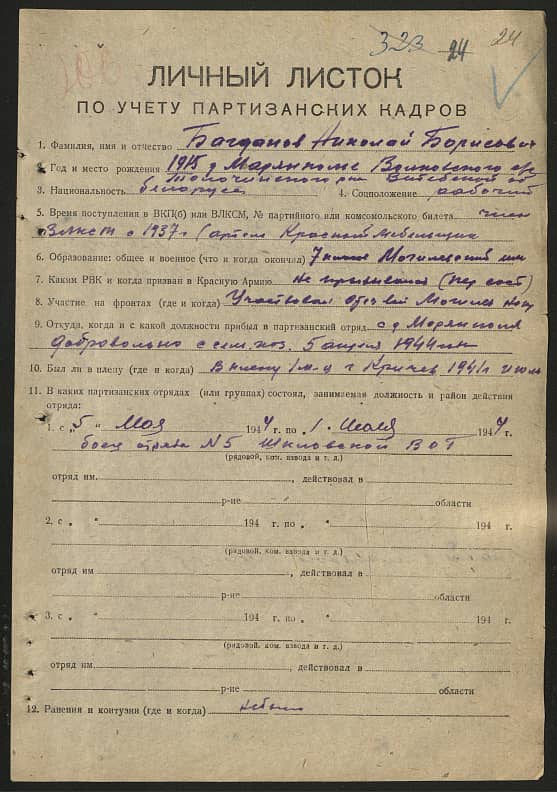 323 24 24
ЛИЧНЫЙ ЛИСТОК
ПО УЧЕТУ ПАРТИЗАНСКИХ КАДРОВ
1. Фамилия, имя и отчество Багданов Николай Борисович
2. Год и место рождения 1915 д
Толочинского р-на Витебской об
3. Национальность белорусс 4. Соцположение рабочий
5. Время поступления в ВКП(б) или ВЛКСМ, № партийного или комсомольского билета член
ВЛКСМ с 1937 г (артель Красный Мебельщик
6. Образование: общее и военное (что и когда окончил)
7. Каким РВК и когда призван в Красную Армию не призывался
8. Участие на фронтах (где и когда) Участвовал Могилев
9. Откуда, когда и с какой должности прибыл в партизанский отряд с д
добровольно 5 1944
10. Был ли в плену (где и когда) В плену г Кричев 1941 г июль
11. В каких партизанских отрядах (или группах) состоял, занимаемая должность и район действия
отряда:
1. с „ 5 “ Мая 1944 г. по „ 1 “ Июля 1944 г.
боец отряда N 5 Шкловской ВОГ
(рядовой, ком. взвода и т. д.)
отряд им. , действовал в
р-не области
2. с „ “ 194 г. по „ “ 194 г.
(рядовой, ком. взвода и т. д.)
отряд им , действовал в
р-не области
3. с „ “ 194 г. по „ “ 194 г.
(рядовой, ком. взвода и т. д.)
отряд им , действовал в
р-не области
12. Ранения и контузии (где и когда)